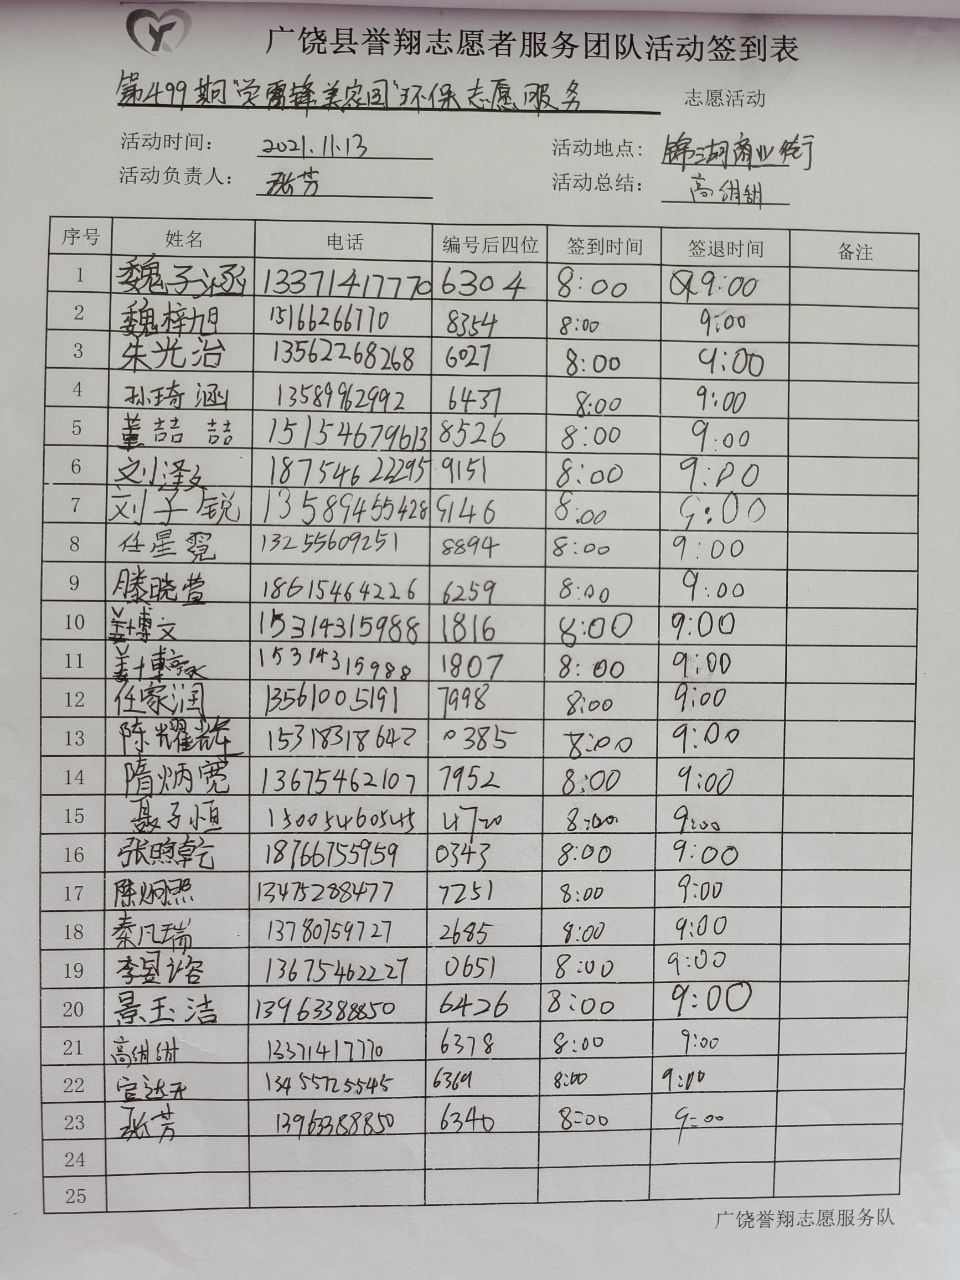 广饶县誉翔志愿者服务团队活动签到表
第499期"学雷锋美家园"环保志愿服务 志愿活动
活动时间: 2021.11.13 活动地点: 锦湖商业街
活动负责人: 张芳 活动总结: 高甜甜
序号 姓名 电话 编号后四位 签到时间 签退时间 备注
1 魏子涵 13371417770 6304 8:00 9:00
2 魏梓旭 15166266770 8354 8:00 9:00
3 朱光治 13562268268 6027 8:00 9:00
4 孙琦涵 13589962992 6437 8:00 9:00
5 董喆喆 15154679613 8526 8:00 9:00
6 刘泽文 18754622295 9151 8:00 9:00
7 刘子锐 13589455428 9146 8:00 9:00
8 任星霓 13255609251 8894 8:00 9:00
9 滕晓萱 18615464226 6259 8:00 9:00
10 姜博文 15314315988 1816 8:00 9:00
11 姜博 15314315988 1807 8:00 9:00
12 任家润 13561005191 7998 8:00 9:00
13 陈耀辉 15318318642 0385 8:00 9:00
14 隋炳宽 13675462107 7952 8:00 9:00
15 聂子恒 15005460545 4720 8:00 9:00
16 张煦乾 18766755959 0343 8:00 9:00
17 陈炯熙 13475288477 7251 8:00 9:00
18 秦凡瑞 13780759727 2685 8:00 9:00
19 李昱谘 13675462227 0651 8:00 9:00
20 景玉洁 13963388850 6426 8:00 9:00
21 高甜甜 13371417770 6378 8:00 9:00
22 13455725545 6369 8:00 9:00
23 张芳 13963388850 6340 8:00 9:00
24
25
广饶誉翔志愿服务队